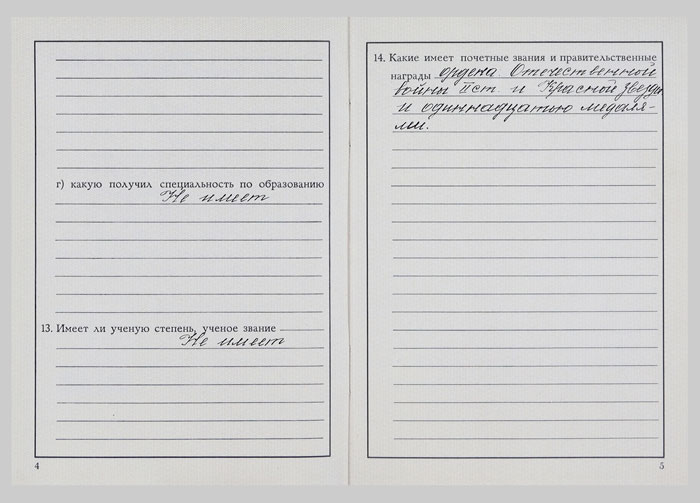 г) какую получил специальность по образованию
Не имеет
13. Имеет ли ученую степень, ученое звание
Не имеет
4
14. Какие имеет почетные звания и правительственные
награды ордена Отечественной
войны II ст. и Красной Звезды
и одиннадцатью медаля-
ми.
5